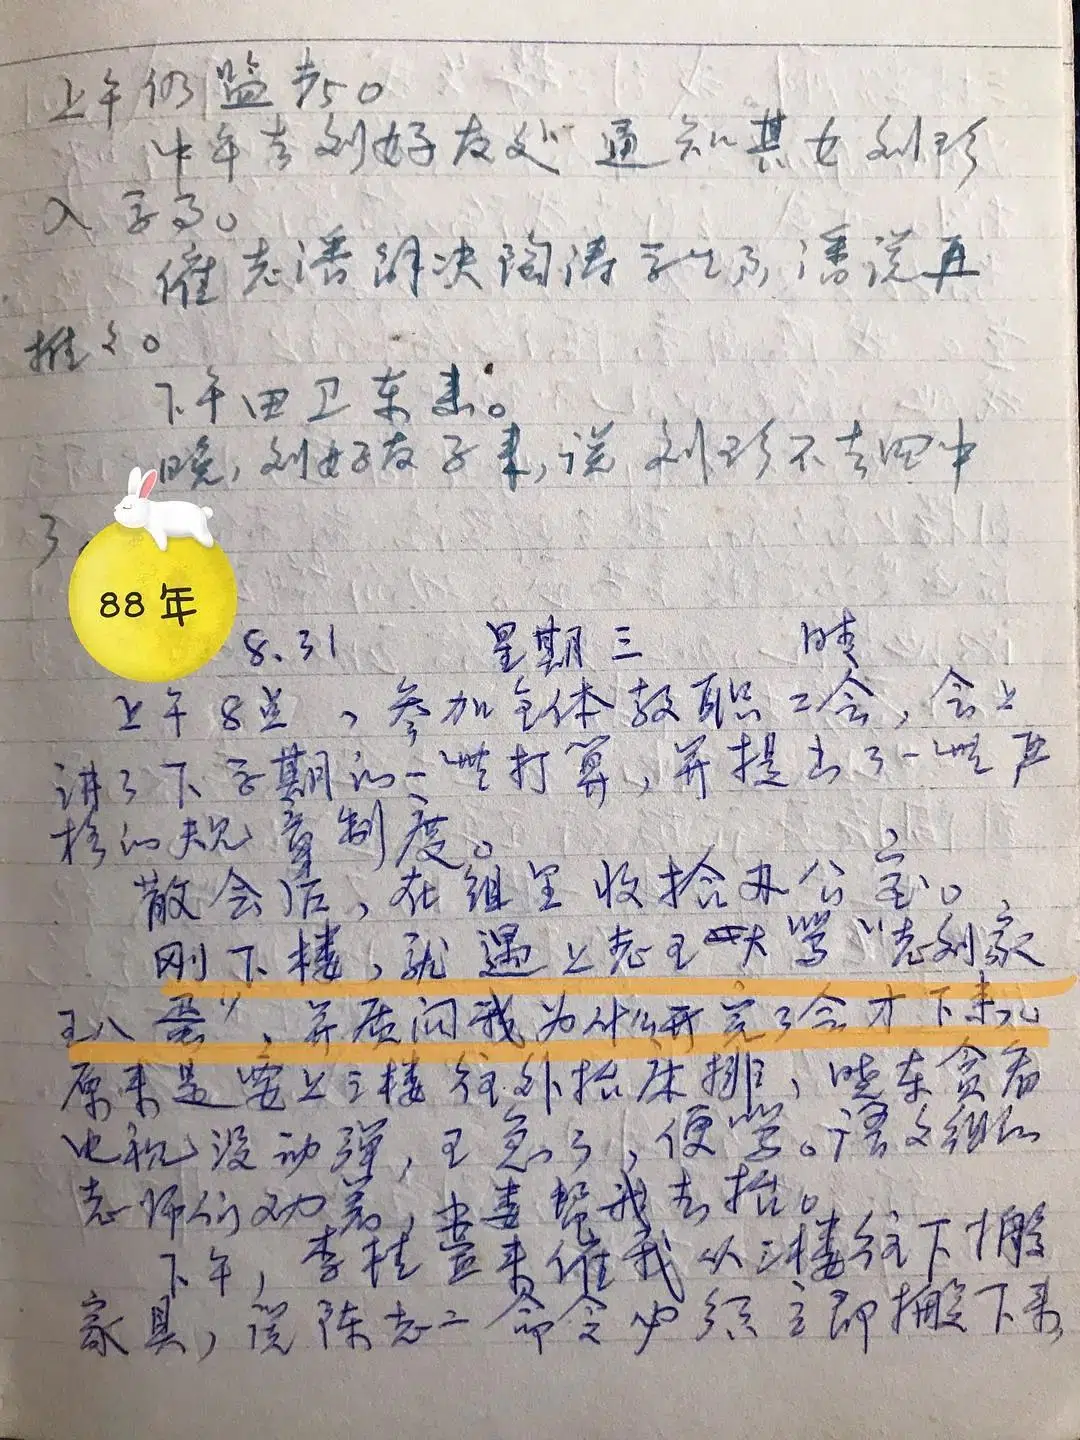 上午仍监考。
中午去刘好友处通知其女刘珍
入学了。
催老潘解决陶涛学生了,潘说再
推之。
下午田卫东来。
晚,刘好友子来,说刘珍不去四中
了
88年
8.31 星期三 晴
上午8点,参加全体教职工会,会上
讲了下学期的一些打算,并提出了一些严
格的规章制度。
散会后,在组里收拾办公室。
刚下楼,就遇上老王大骂“老刘家
王八蛋”,并质问我为什么开完了会才下来。
原来是要上三楼往外抬床排,晓东贪看
电视没动弹,王急了,便骂。语文组的
老师们劝着,娄帮我去抬。
下午,李桂 来催我从三楼往下搬
家具,说陈老二命令必须立即搬下来,